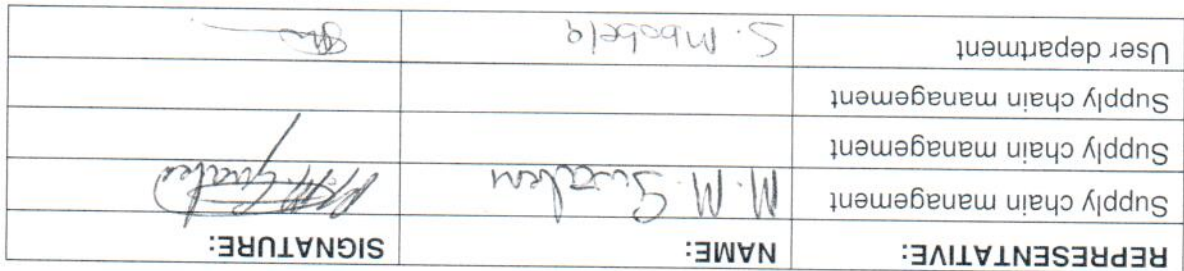 REPRESENTATIVE: NAME: SIGNATURE:
Supply chain management M. M.
Supply chain management
Supply chain management
User department S. Mbobela